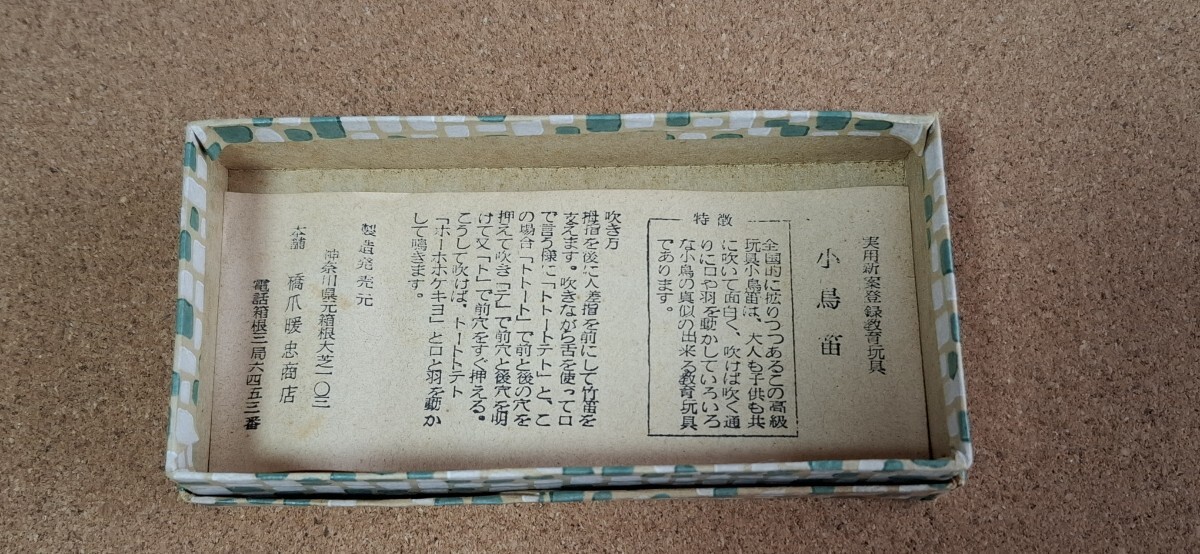 実用新案登録教育玩具
小鳥笛
特徴
全国的に拡りつつあるこの高級
玩具小鳥笛は、大人も子供も共
に吹いて面白く、吹けば吹く通
りに口や羽を動かしていろいろ
な小鳥の真似の出来る教育玩具
であります。
吹き方
拇指を後に人差指を前にして竹笛を
支えます。吹きながら舌を使って口
で言う様に「トトートテト」と、こ
の場合「トトート」で前と後の穴を
押えて吹き「テ」で前穴と後穴を明
けて又「ト」で前穴をすぐ押える。
こうして吹けば、トートトテト
「ホーホホケキヨ」と口と羽を動か
して鳴きます。
製造発売元
神奈川県元箱根大芝一〇三
本舗 橋爪暖忠商店
電話箱根三局六四五三番